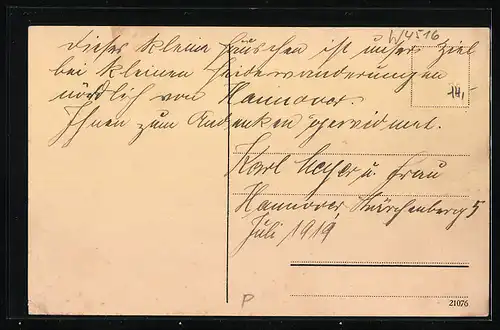 W/4516
Dieses kleine Häuschen ist unser Ziel
bei kleinen Heidewanderungen
nördlich von Hannover.
14,-
Ihnen zum Andenken gewidmet.
Karl Meyer u. Frau
Hannover, 5
Juli 1919
P
21076